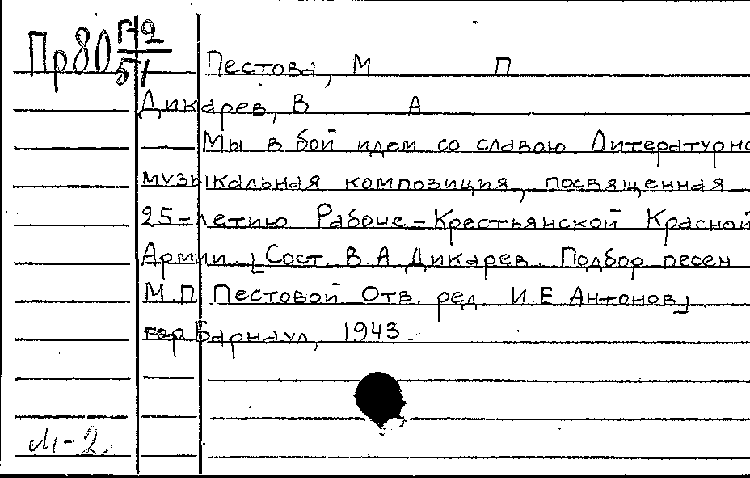 Пр80 П-2
51
Пестова, М П
Дикарев, В А
Мы в бой идем со славою Литературно
музыкальная композиция, посвященная
25-летию Рабоче-Крестьянской Красной
Армии [Сост. В.А. Дикарев. Подбор песен
М.П. Пестовой Отв. ред. И.Е. Антонов]
гор Барнаул, 1943.
М-2